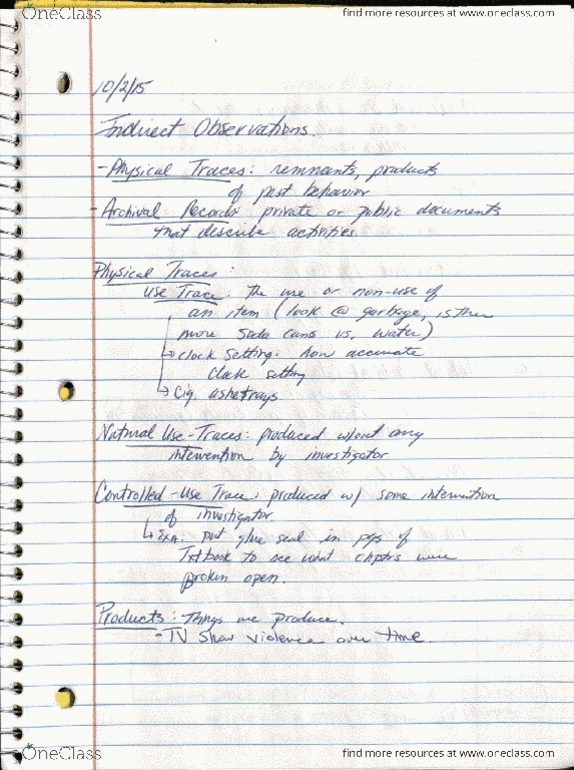 OneClass find more resources at www.oneclass.com
10/2/15
Indirect Observations.
- Physical Traces: remnants, products
of past behavior
- Archival Records: private or public documents
that describe activities.
Physical Traces:
Use Trace: The use or non-use of
an item (look @ garbage, is ther
more Soda cans vs. water)
↳ clock Setting: how accurate
clock setting
↳ Cig. ashetrays
Natural Use-Traces: produced w/out any
intervention by investigator
Controlled-Use Trace: produced w/ some intervention
of investigator.
↳ Exa: put glue seal in pgs of
Txtbook to see what chptrs were
broken open.
Products: Things we produce.
- TV Show violence over time.
OneClass find more resources at www.oneclass.com